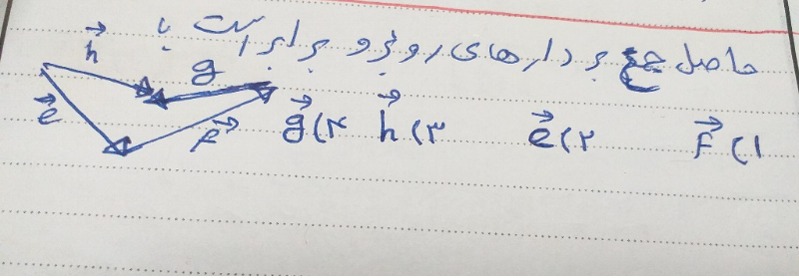 حاصل جمع بردارهای روبرو برابر است با :
h g
e F
۱) F ۲) e ۳) h ۴) g